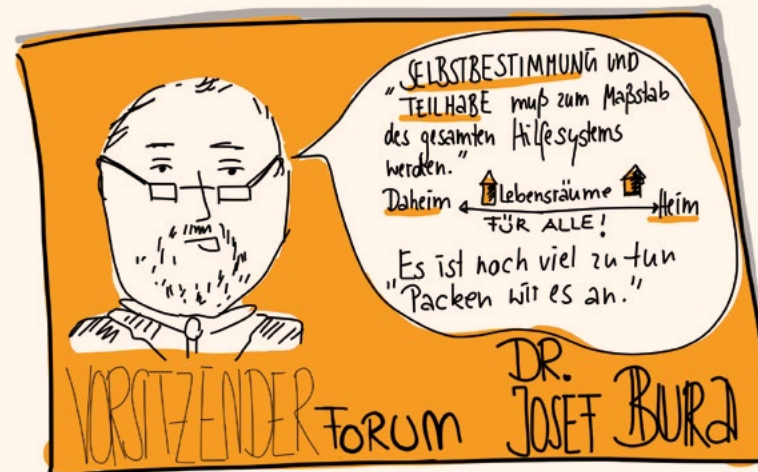 "SELBSTBESTIMMUNG UND
TEILHABE muß zum Maßstab
des gesamten Hilfesystems
werden."
Daheim Lebensräume Heim
FÜR ALLE!
"Es ist noch viel zu tun
Packen wir es an."
VORSITZENDER FORUM DR. JOSEF BURA